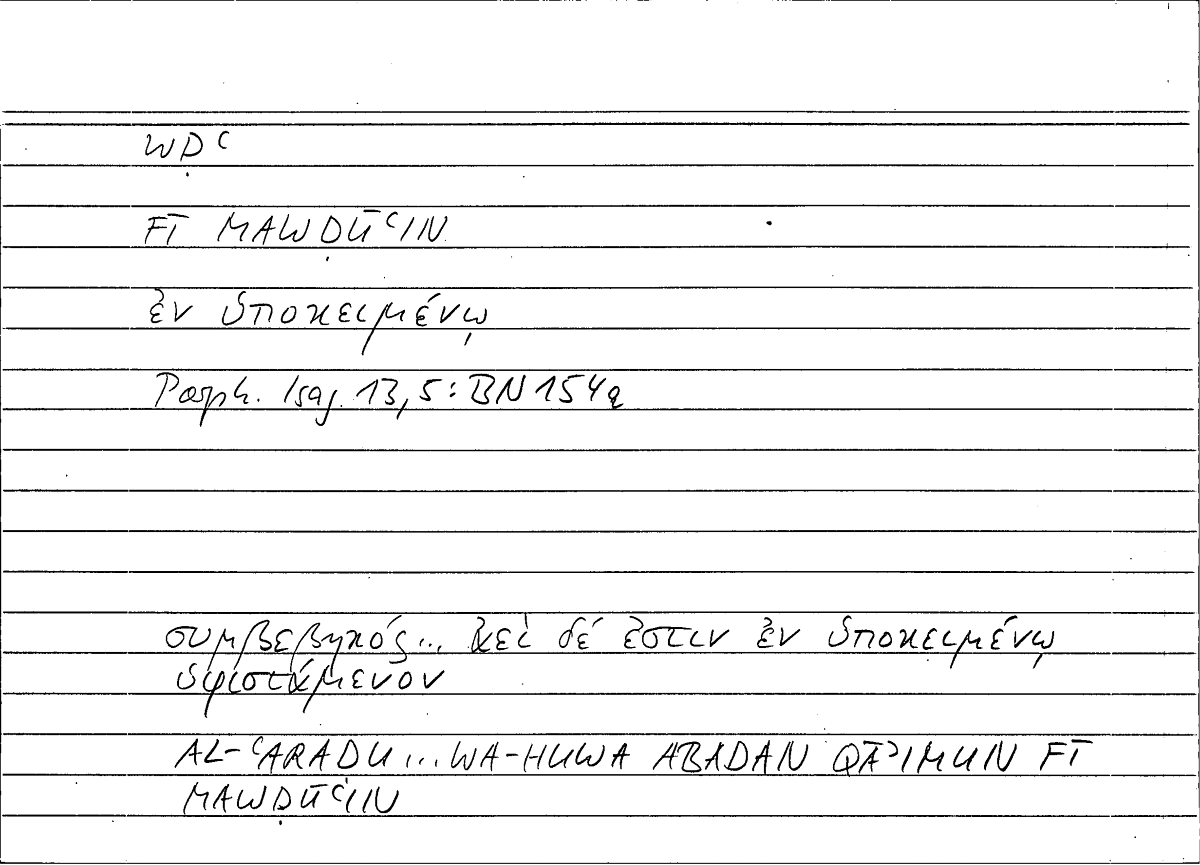 WḌʿ
FĪ MAWḌŪʿIN
ἐν ὑποκειμένῳ
Porph. Isag. 13,5: BN 154a
συμβεβηκός... ἀεὶ δέ ἐστιν ἐν ὑποκειμένῳ
ὑφιστάμενον
AL-ʿARADU... WA-HUWA ABADAN QĀʾIMUN FĪ
MAWḌŪʿIN